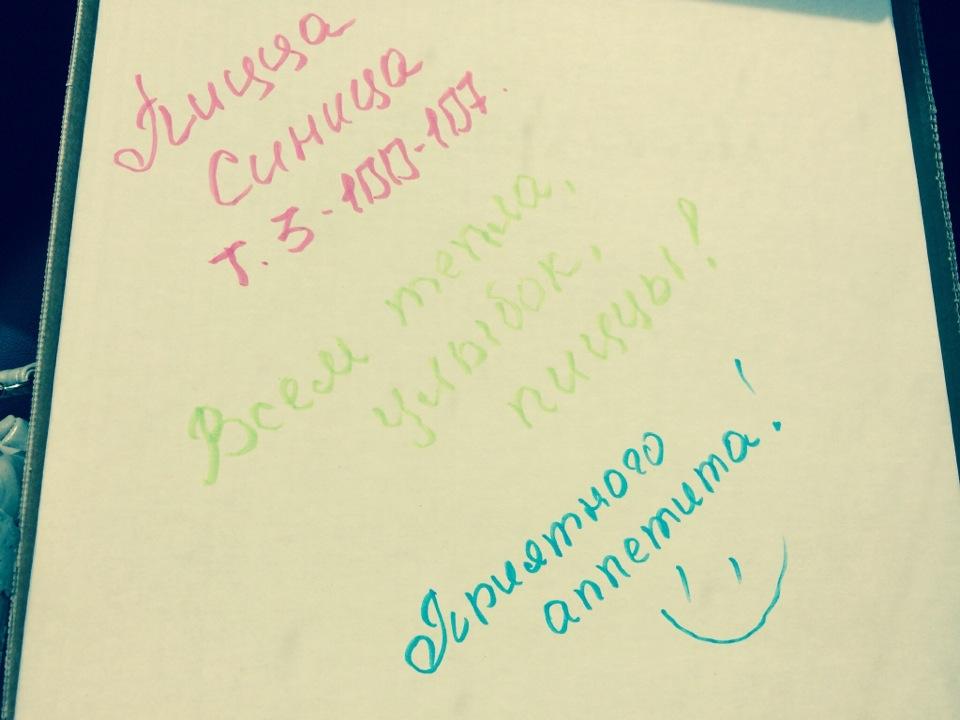 Пицца
Синица
т. 3-133-137.
Всем тепла,
улыбок,
пиццы!
Приятного
аппетита!